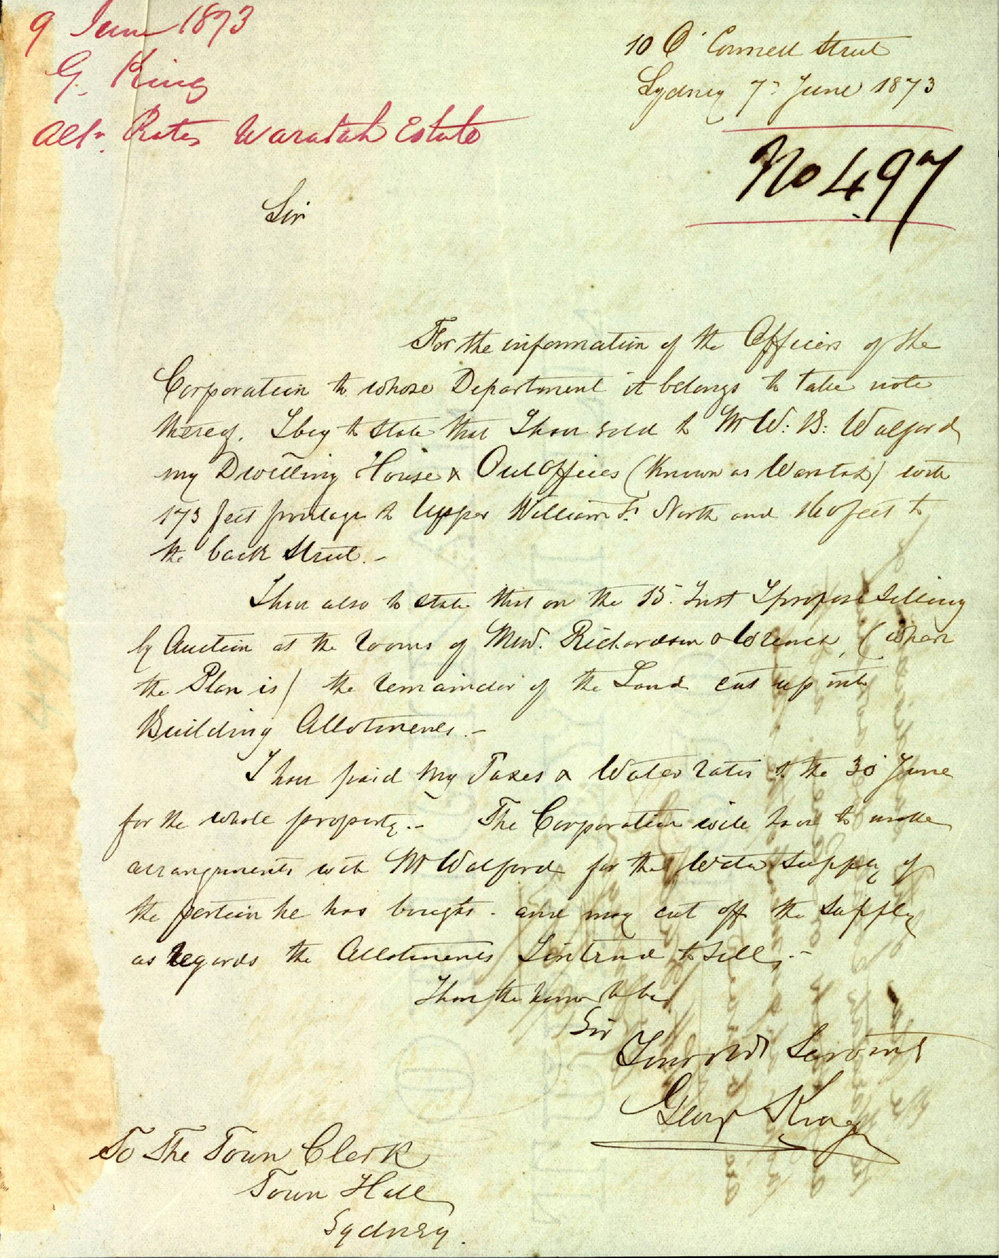 9 June 1873
G. King
Alt.n Rates Waratah Estate
10 O'Connell Street
Sydney 7 June 1873
No 497
Sir
For the information of the Officers of the
Corporation to whose Department it belongs to take note
thereof, I beg to state that I have sold to Mr W. B. Walford
my Dwelling House & Out Offices (Known as Waratah) with
173 feet frontage to Upper William St. North and 160 feet to
the back Street.-
I have also to state that on the 15 Inst I propose selling
by Auction at the rooms of Messrs. Richardson & Wrench, (where
the Plan is) the remainder of the Land cut up into
Building Allotments.-
I have paid my Taxes & Water rates to the 30 June
for the whole property.- The Corporation will have to make
arrangements with Mr Walford for the Water Supply of
the portion he has bought. and may cut off the supply
as regards the Allotments I intend to sell.-
I have the honor to be
Sir
Your obdt Servant
George King
To The Town Clerk
Town Hall
Sydney.
497